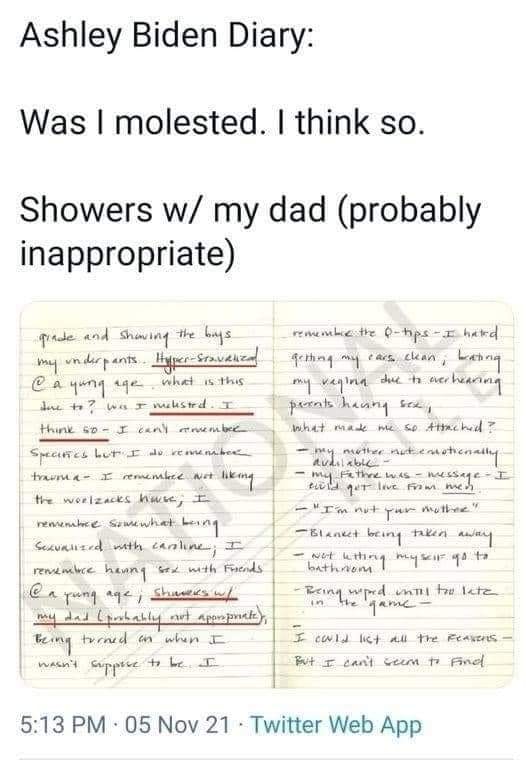 Ashley Biden Diary:
Was I molested. I think so.
Showers w/ my dad (probably
inappropriate)
grade and shaving the boys
my underpants. Hyper-sexualized
@ a young age. what is this
due to? was I molested. I
think so - I can't remember
specifics but I do remember
trauma - I remember not liking
the woelzacks house; I
remember somewhat being
sexualized with caroline; I
remember having sex with friends
@ a young age; showers w/
my dad (probably not appropriate).
Being turned on when I
wasn't suppose to be. I
remember the Q-tips - I hated
getting my ears clean;
my vagina due to overhearing
parents having sex,
what made me so attached?
- my mother not emotionally
available -
- my Fathre was - message - I
could get love from men
- "I'm not your mother"
- Blanket being taken away
- Not letting myself go to
bathroom
- Being wiped until too late
in the "game -
I could list all the reasons -
But I can't seem to find
NATIONAL FILE
5:13 PM · 05 Nov 21 · Twitter Web App